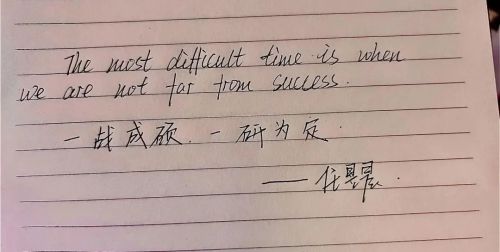 The most difficult time is when
we are not far from success.
一战成硕.一研为定.
——任